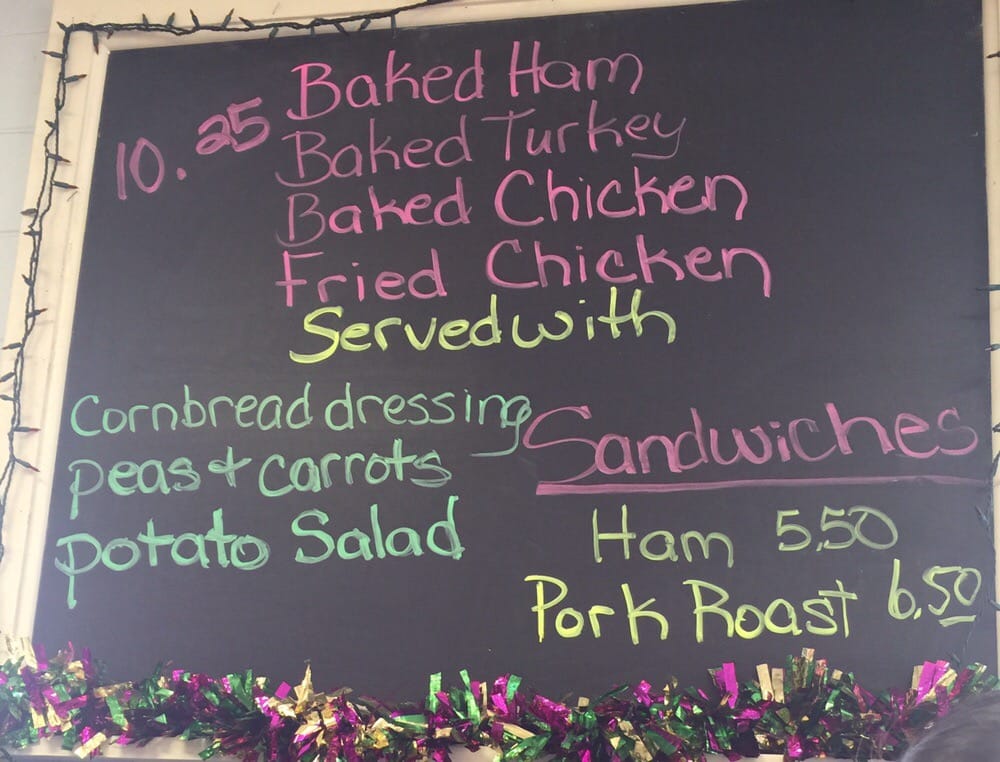 Baked Ham
10.25
Baked Turkey
Baked Chicken
Fried Chicken
Served with
Cornbread dressing
peas & carrots
potato Salad
Sandwiches
Ham 5.50
Pork Roast 6.50